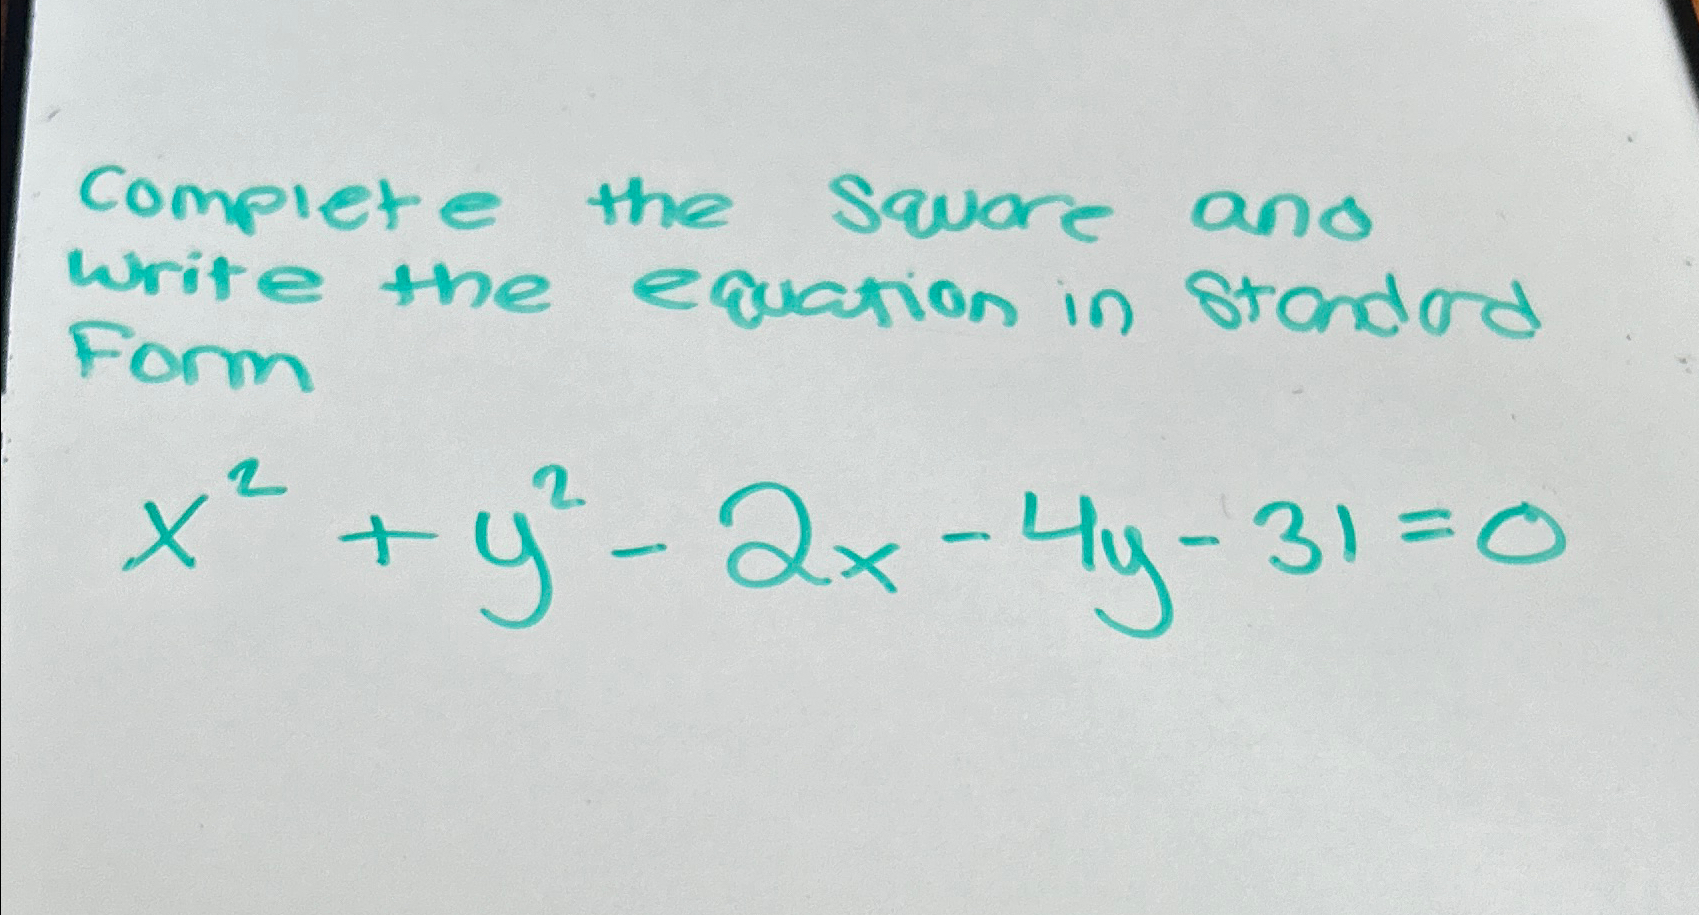 Complete the Square and
write the equation in Standard
Form
x² + y² - 2x - 4y - 31 = 0